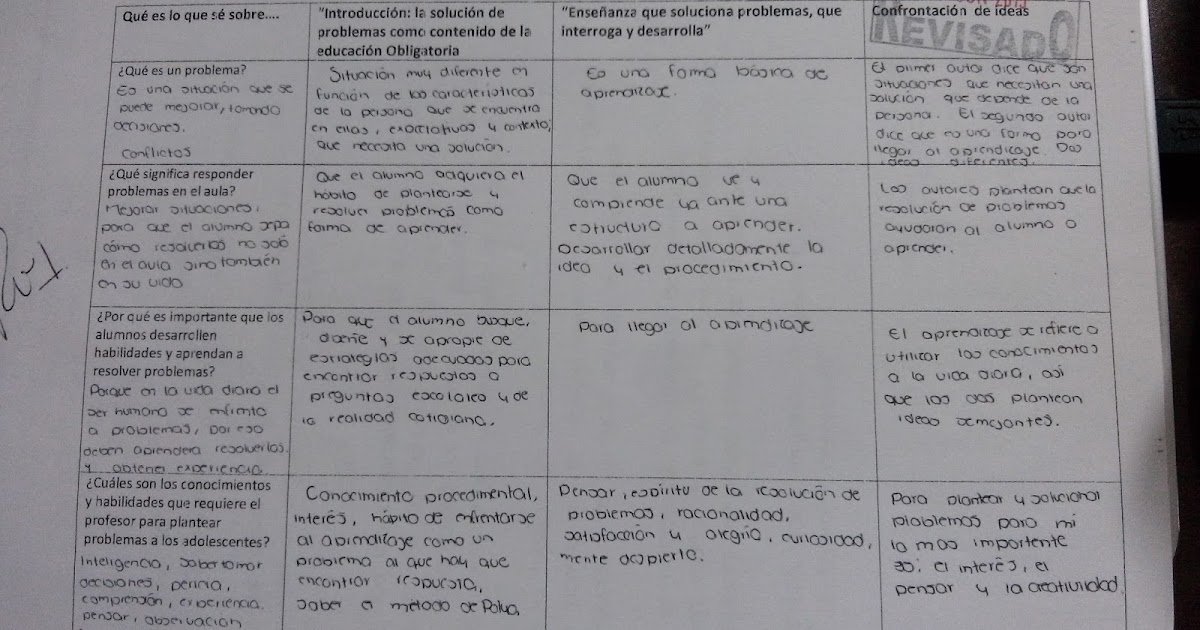 Qué es lo que sé sobre....
"Introducción: la solución de
problemas como contenido de la
educación Obligatoria
"Enseñanza que soluciona problemas, que
interroga y desarrolla"
Confrontación de ideas
REVISADO
¿Qué es un problema?
Es una situación que se
puede mejorar, tomando
decisiones.
Conflictos
Situación muy diferente en
función de las características
de la persona que se encuentra
en ellas, expectativas y contexto,
que necesita una solución.
Es una forma básica de
aprendizaje.
El primer autor dice que son
situaciones que necesitan una
solución que depende de la
persona. El segundo autor
dice que es una forma para
llegar al aprendizaje. Dos
ideas diferentes.
¿Qué significa responder
problemas en el aula?
Mejorar situaciones,
para que el alumno sepa
cómo resolverlos no solo
en el aula sino también
en su vida
Que el alumno adquiera el
hábito de plantearse y
resolver problemas como
forma de aprender.
Que el alumno ve y
comprende ya ante una
estructura a aprender.
Desarrollar detalladamente la
idea y el procedimiento.
Los autores plantean que la
resolución de problemas
ayudarán al alumno a
aprender.
¿Por qué es importante que los
alumnos desarrollen
habilidades y aprendan a
resolver problemas?
Porque en la vida diaria el
ser humano se enfrenta
a problemas, por eso
deben aprender a resolverlos
y obtener experiencia
Para que el alumno busque,
diseñe y se apropie de
estrategias adecuadas para
encontrar respuestas a
preguntas escolares y de
la realidad cotidiana.
Para llegar al aprendizaje
El aprendizaje se refiere a
utilizar los conocimientos
a la vida diaria, así
que los dos plantean
ideas semejantes.
¿Cuáles son los conocimientos
y habilidades que requiere el
profesor para plantear
problemas a los adolescentes?
Inteligencia, saber tomar
decisiones, pericia,
comprensión, experiencia,
pensar, observación
Conocimiento procedimental,
interés, hábito de enfrentarse
al aprendizaje como un
problema al que hay que
encontrar respuesta,
saber el método de Polya,
Pensar, espíritu de la resolución de
problemas, racionalidad,
satisfacción y alegría, curiosidad,
mente despierta.
Para plantear y solucionar
problemas para mi
lo mas importante
es: el interés, el
pensar y la creatividad.